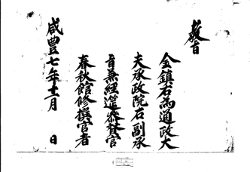 敎旨
金鎭右爲通政大
夫承政院右副承
旨兼經筵參贊官
春秋館修撰官者
咸豊七年十二月 日